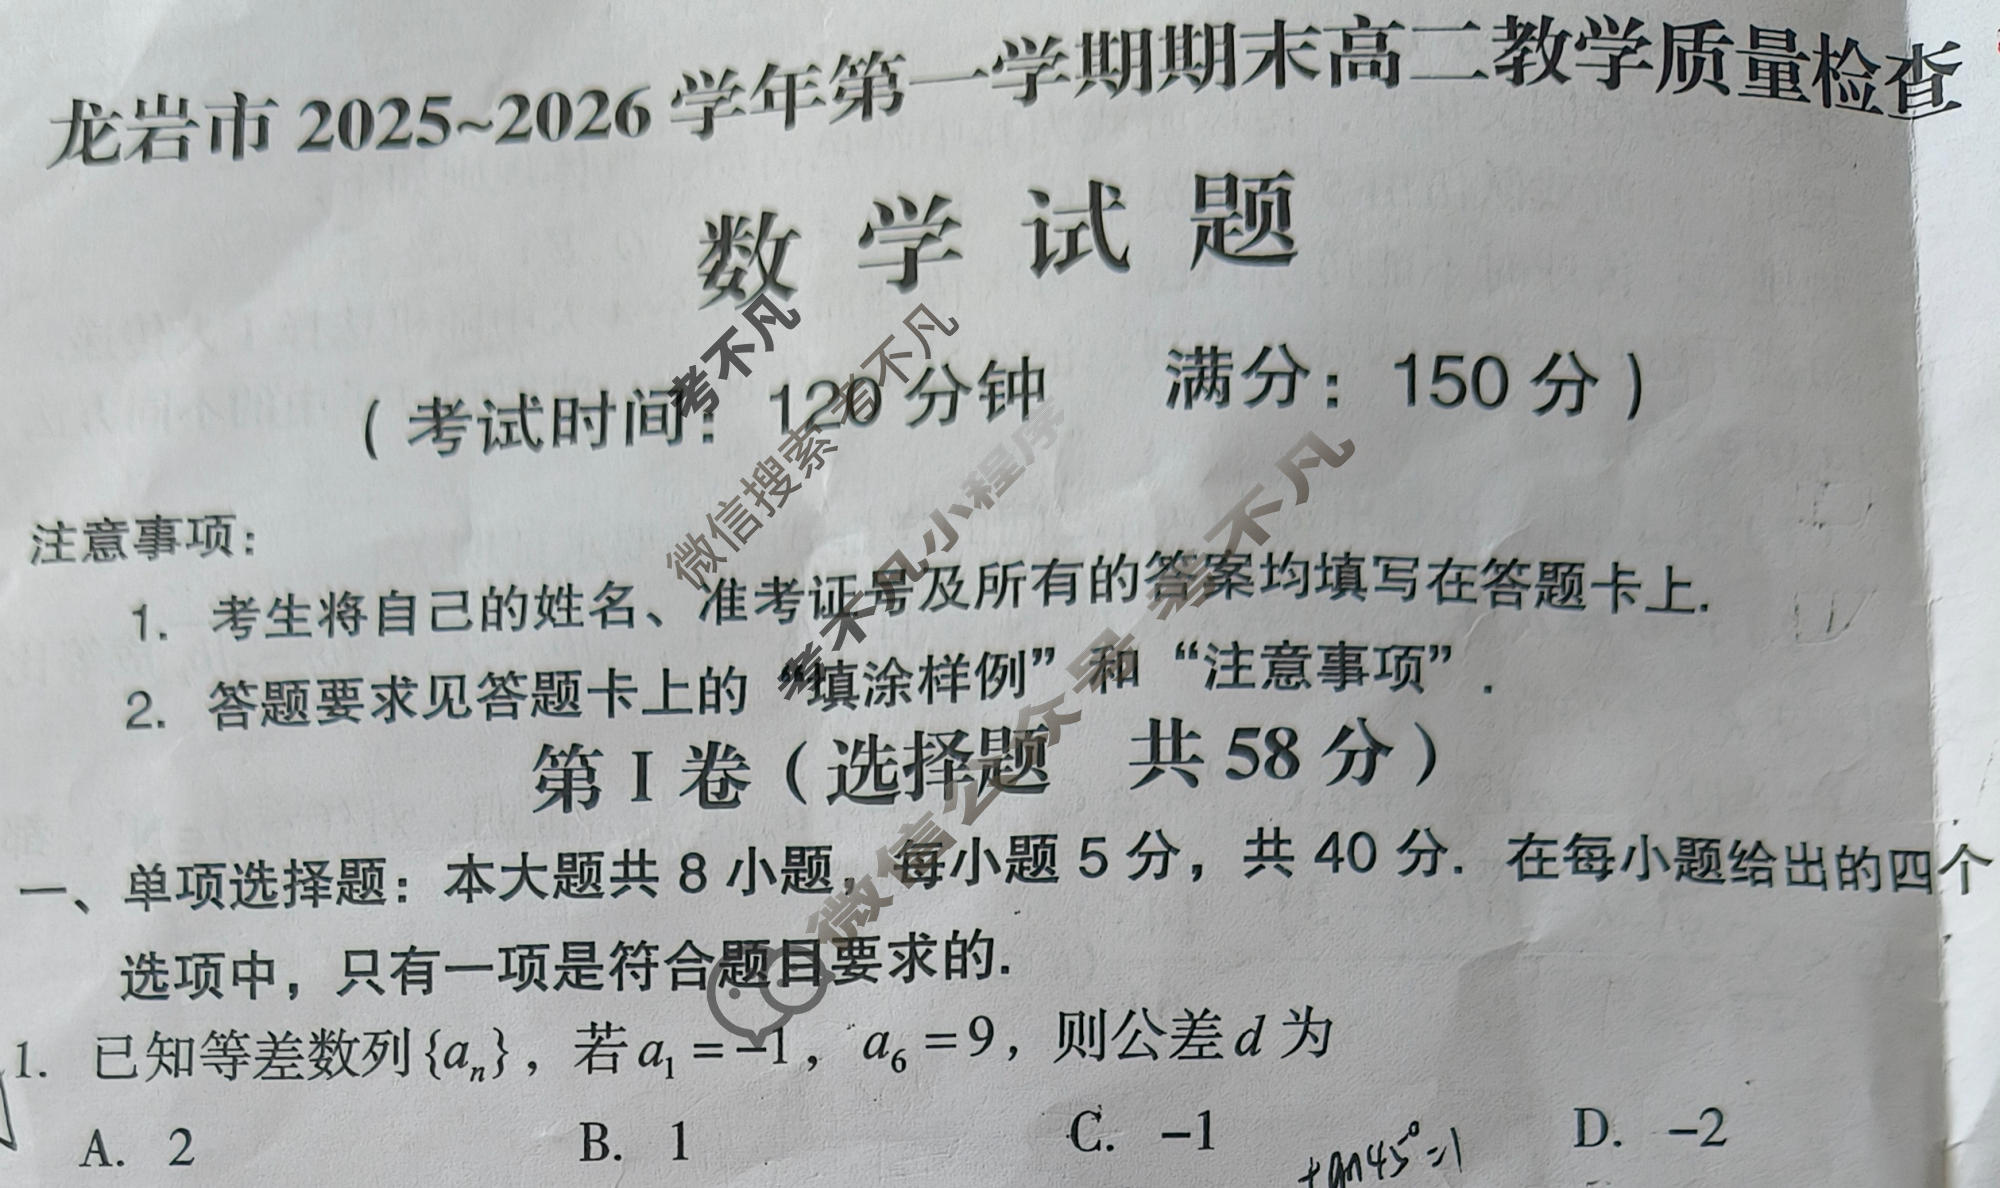 龙岩市 2025~2026 学年第一学期期末高二教学质量检查
数 学 试 题
（考试时间：120 分钟　满分：150 分）
注意事项：
1. 考生将自己的姓名、准考证号及所有的答案均填写在答题卡上.
2. 答题要求见答题卡上的“填涂样例”和“注意事项”.
第 I 卷（选择题　共 58 分）
一、单项选择题：本大题共 8 小题，每小题 5 分，共 40 分. 在每小题给出的四个
选项中，只有一项是符合题目要求的.
1. 已知等差数列{aₙ}，若a₁=−1，a₆=9，则公差d为
A. 2　B. 1　C. −1　D. −2
tan45°=1
考不凡
微信搜索 考不凡
考不凡小程序
微信公众号 考不凡